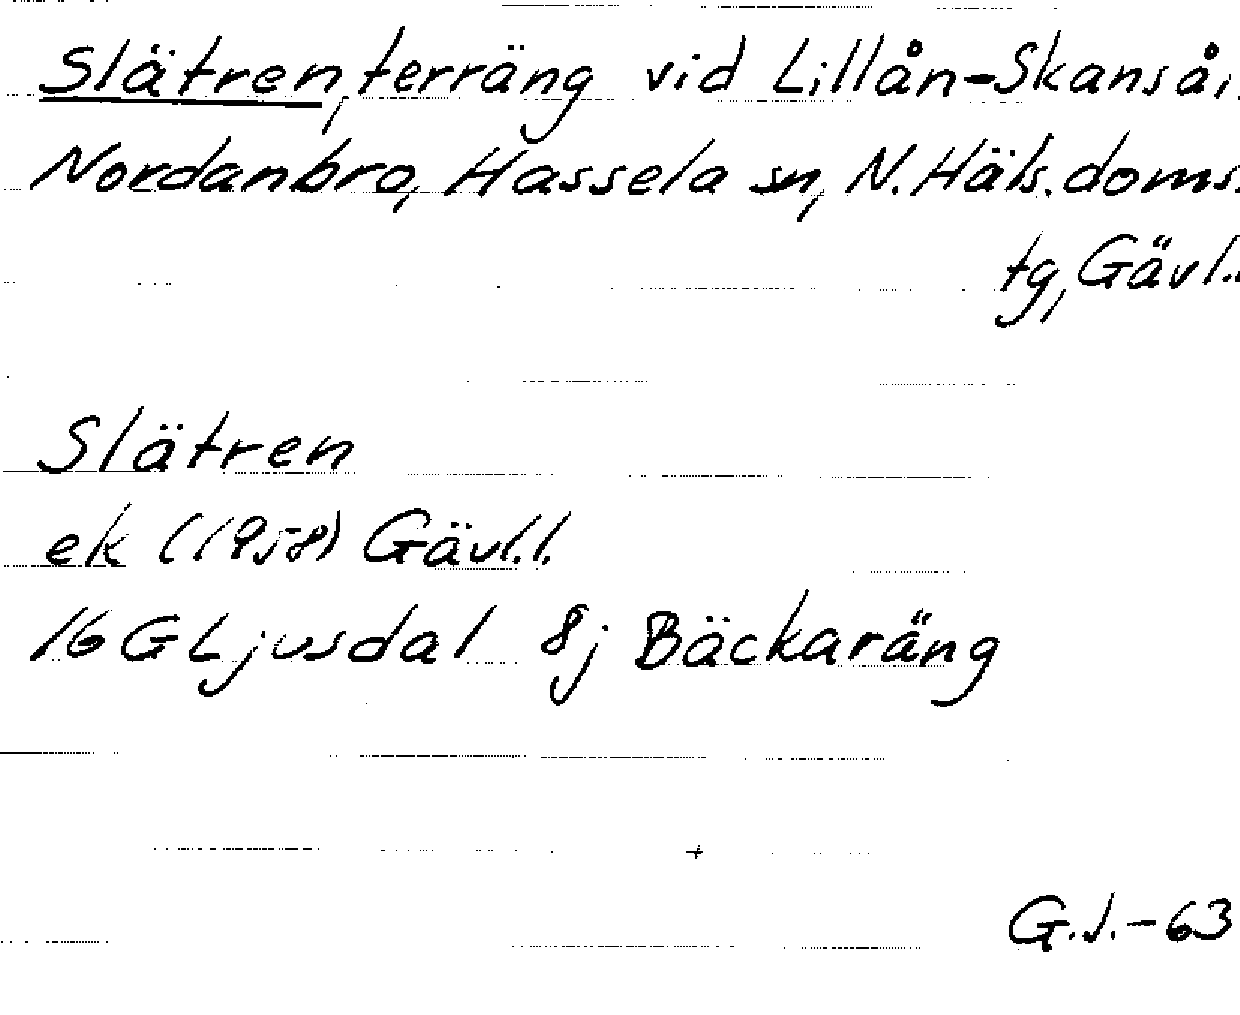 Slätren, terräng vid Lillån-Skansån,
Nordanbro, Hassela sn, N. Häls. doms.
tg, Gävl.
Slätren
ek (1958) Gävl.l.
16 G Ljusdal 8j Bäckaräng
G.J.-63